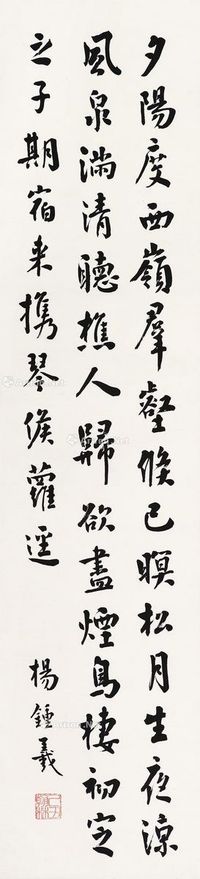 夕陽度西嶺羣壑倏已暝松月生夜涼
風泉滿清聽樵人歸欲盡煙鳥棲初定
之子期宿来携琴候蘿逕
楊鍾羲